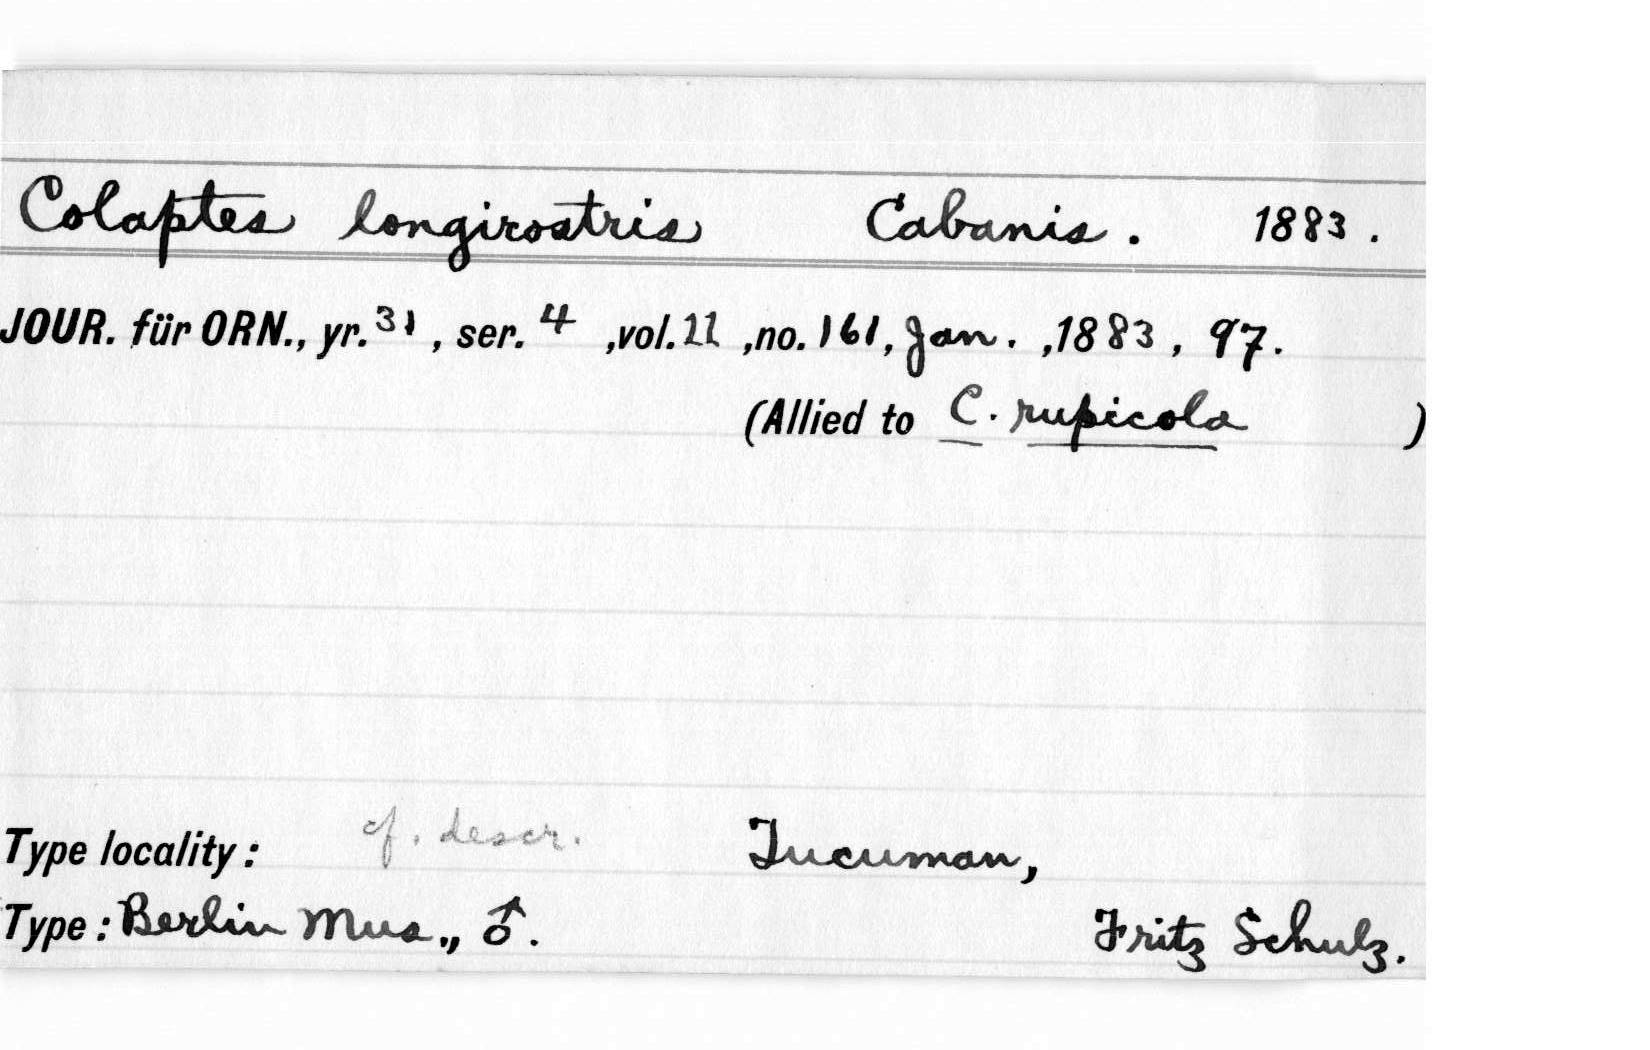 Colaptes longirostris Cabanis. 1883.
JOUR. für ORN., yr. 31, ser. 4, vol. 11, no. 161, Jan., 1883, 97.
(Allied to C. rupicola )
Type locality: cf. descr. Tucuman,
Type: Berlin Mus., ♂. Fritz Schulz.